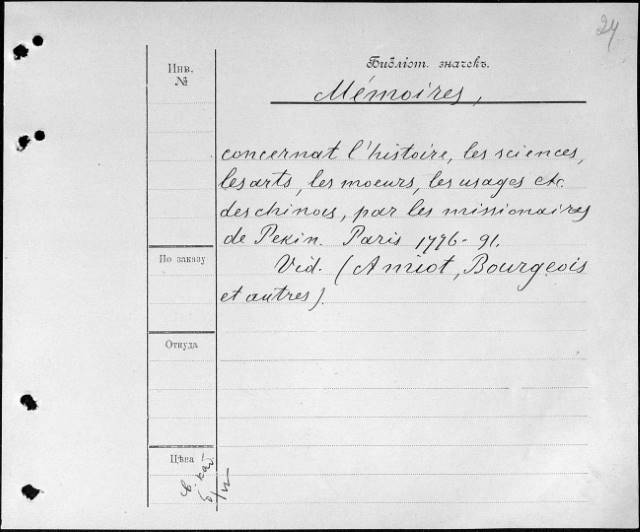 24
Инв.
№
Библіот. значекъ.
Mémoires,
concernat l'histoire, les sciences,
les arts, les moeurs, les usages etc.
des chinois, par les missionaires
de Pekin. Paris 1776-91.
Vid. (Amiot, Bourgeois
et autres).
По заказу
Откуда
Цѣна